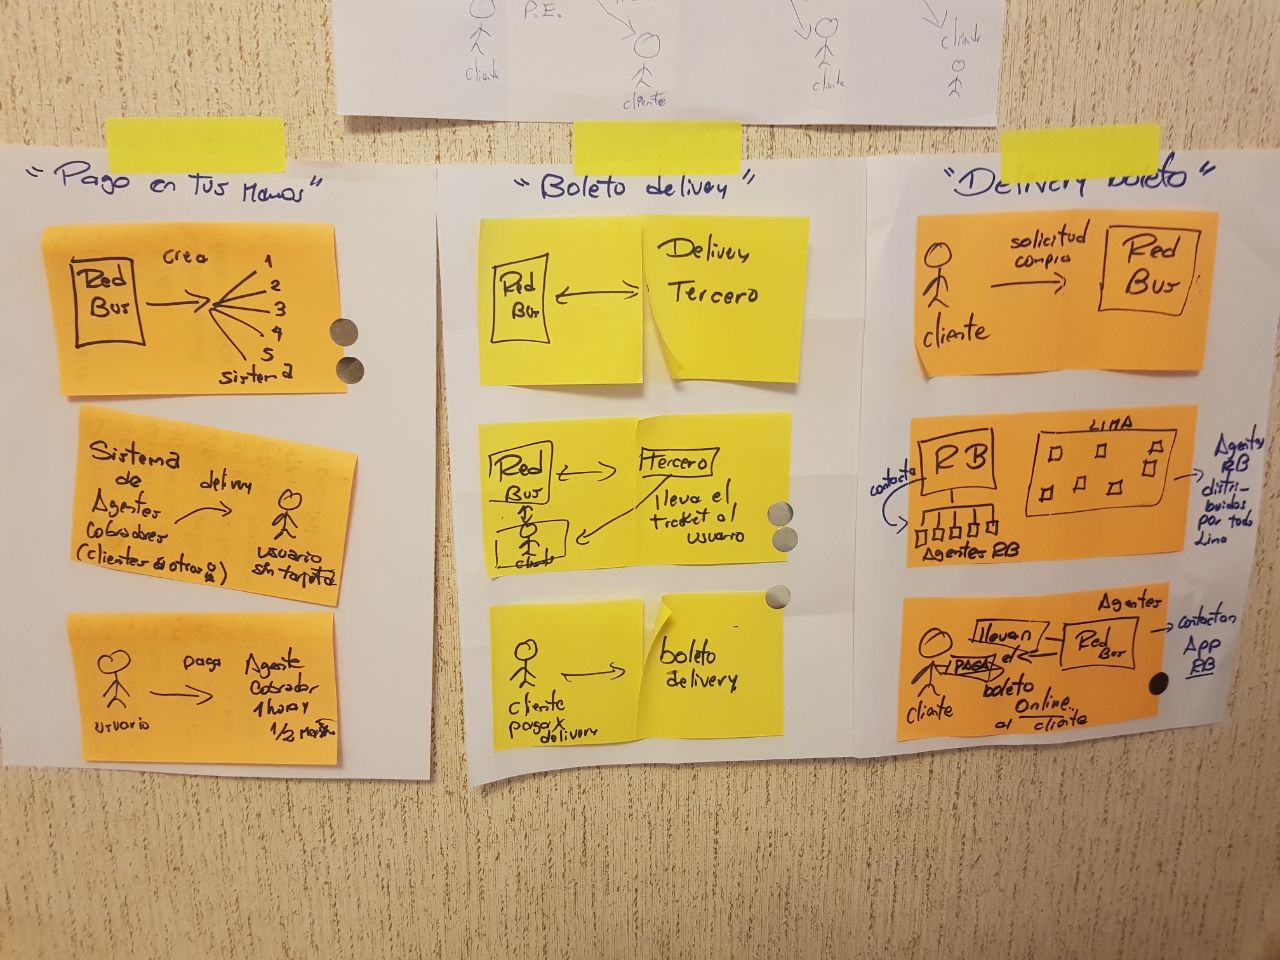 P.E.
cliente
cliente
cliente
cliente
"Pago en Tus Manos"
Red
Bus
crea
1
2
3
4
5
sistema
Sistema
de
Agentes
Cobradores
(clientes
delivery
usuario
sin tarjeta
usuario
paga
Agente
Cobrador
1 hora y
1/2
"Boleto delivery"
Red
Bus
Delivery
Tercero
Red
Bus
cliente
Tercero
lleva el
ticket al
usuario
cliente
paga x
delivery
boleto
delivery
"Delivery boleto"
cliente
solicitud
compra
Red
Bus
contacta
RB
Agentes RB
LIMA
Agentes
RB
distri-
buidos
por todo
Lima
cliente
llevan
PAGA
el
boleto
Online
al cliente
Agentes
Red
Bus
contactan
App
RB